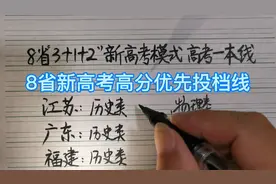 8省"3+1+2"新高考模式 高考一本线
8省新高考高分优先投档线
江苏：历史类 物理类
广东：历史类
福建：历史类